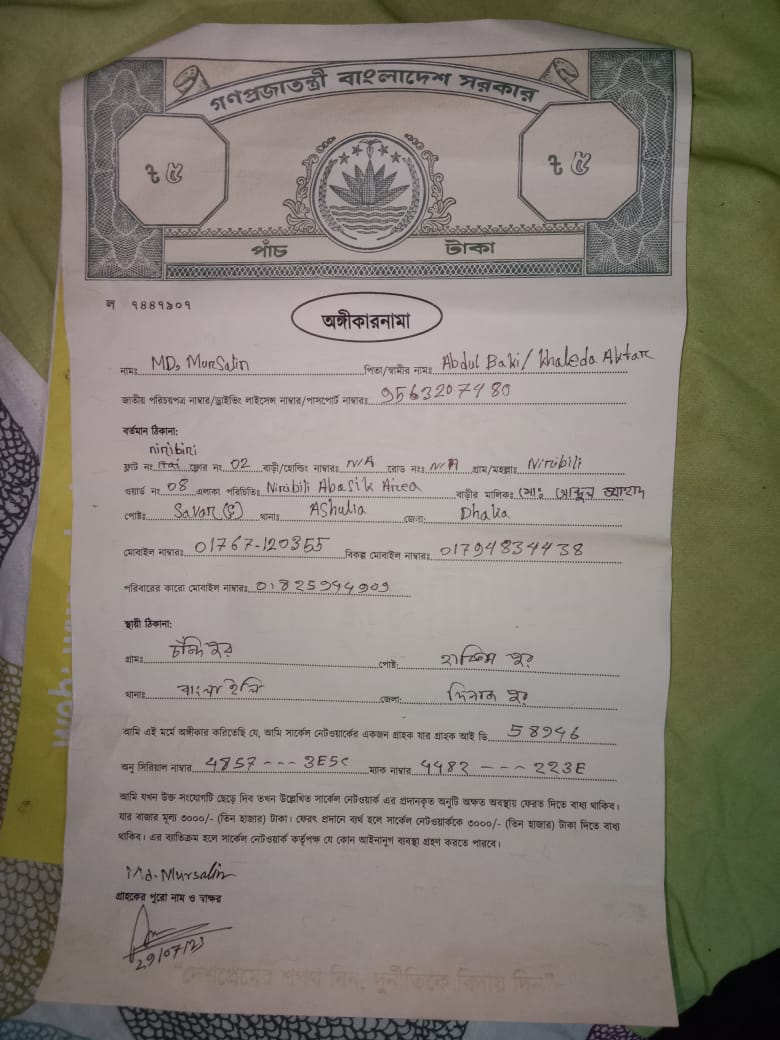 গণপ্রজাতন্ত্রী বাংলাদেশ সরকার
৳ ৫ ৳ ৫
পাঁচ টাকা
ল ৭৪৪৭৯০৭
অঙ্গীকারনামা
নামঃ MD. Mursalin পিতা/স্বামীর নামঃ Abdul Baki/ Khaleda Aktar
জাতীয় পরিচয়পত্র নাম্বার/ড্রাইভিং লাইসেন্স নাম্বার/পাসপোর্ট নাম্বারঃ 9563207480
বর্তমান ঠিকানা:
niribiri
ফ্লাট নং ফ্লোর নং 02 বাড়ী/হোল্ডিং নাম্বারঃ N/A রোড নংঃ N/A গ্রাম/মহল্লাঃ Niribili
ওয়ার্ড নং 08 এলাকা পরিচিতিঃ Niribili Abasik Airea বাড়ীর মালিকঃ মোঃ
পোষ্টঃ Savar থানাঃ AShulia জেলা: Dhaka
মোবাইল নাম্বারঃ 01767-120355 বিকল্প মোবাইল নাম্বারঃ 01794834438
পরিবারের কারো মোবাইল নাম্বারঃ 01825994909
স্থায়ী ঠিকানা:
গ্রামঃ চন্ডিপুর পোষ্ট: হাকিমপুর
থানাঃ বাংলাহিলি জেলা: দিনাজপুর
আমি এই মর্মে অঙ্গীকার করিতেছি যে, আমি সার্কেল নেটওয়ার্কের একজন গ্রাহক যার গ্রাহক আই ডি 58946
অনু সিরিয়াল নাম্বার 4857---3E5C ম্যাক নাম্বার 4482---223E
আমি যখন উক্ত সংযোগটি ছেড়ে দিব তখন উল্লেখিত সার্কেল নেটওয়ার্ক এর প্রদানকৃত অনুটি অক্ষত অবস্থায় ফেরত দিতে বাধ্য থাকিব।
যার বাজার মূল্য ৩০০০/- (তিন হাজার) টাকা। ফেরৎ প্রদানে ব্যর্থ হলে সার্কেল নেটওয়ার্ককে ৩০০০/- (তিন হাজার) টাকা দিতে বাধ্য
থাকিব। এর ব্যতিক্রম হলে সার্কেল নেটওয়ার্ক কর্তৃপক্ষ যে কোন আইনানুগ ব্যবস্থা গ্রহণ করতে পারবে।
Md. Mursalin
গ্রাহকের পুরো নাম ও স্বাক্ষর
29/07/23
"দেশপ্রেমের শপথ নিন, দুর্নীতিকে বিদায় দিন"